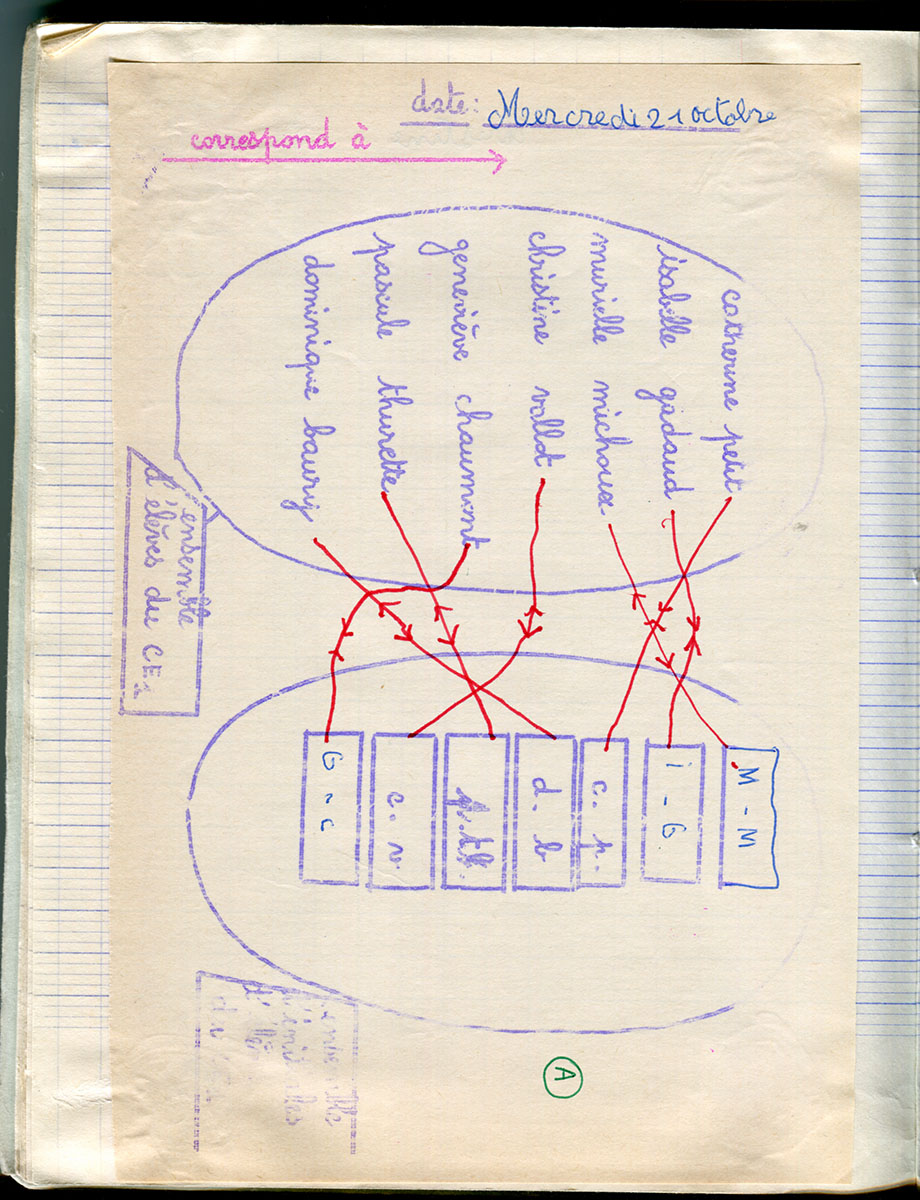 date: Mercredi 21 octobre
correspond à
catherine petit
isabelle gadaud
murielle michoux
christine vallot
geneviève chaumont
pascale thurette
dominique baury
l'ensemble
d'élèves du CE1
M - M
i - G
c. p.
d. b
p. th.
c. v
G - c
l'ensemble
d'
du
A